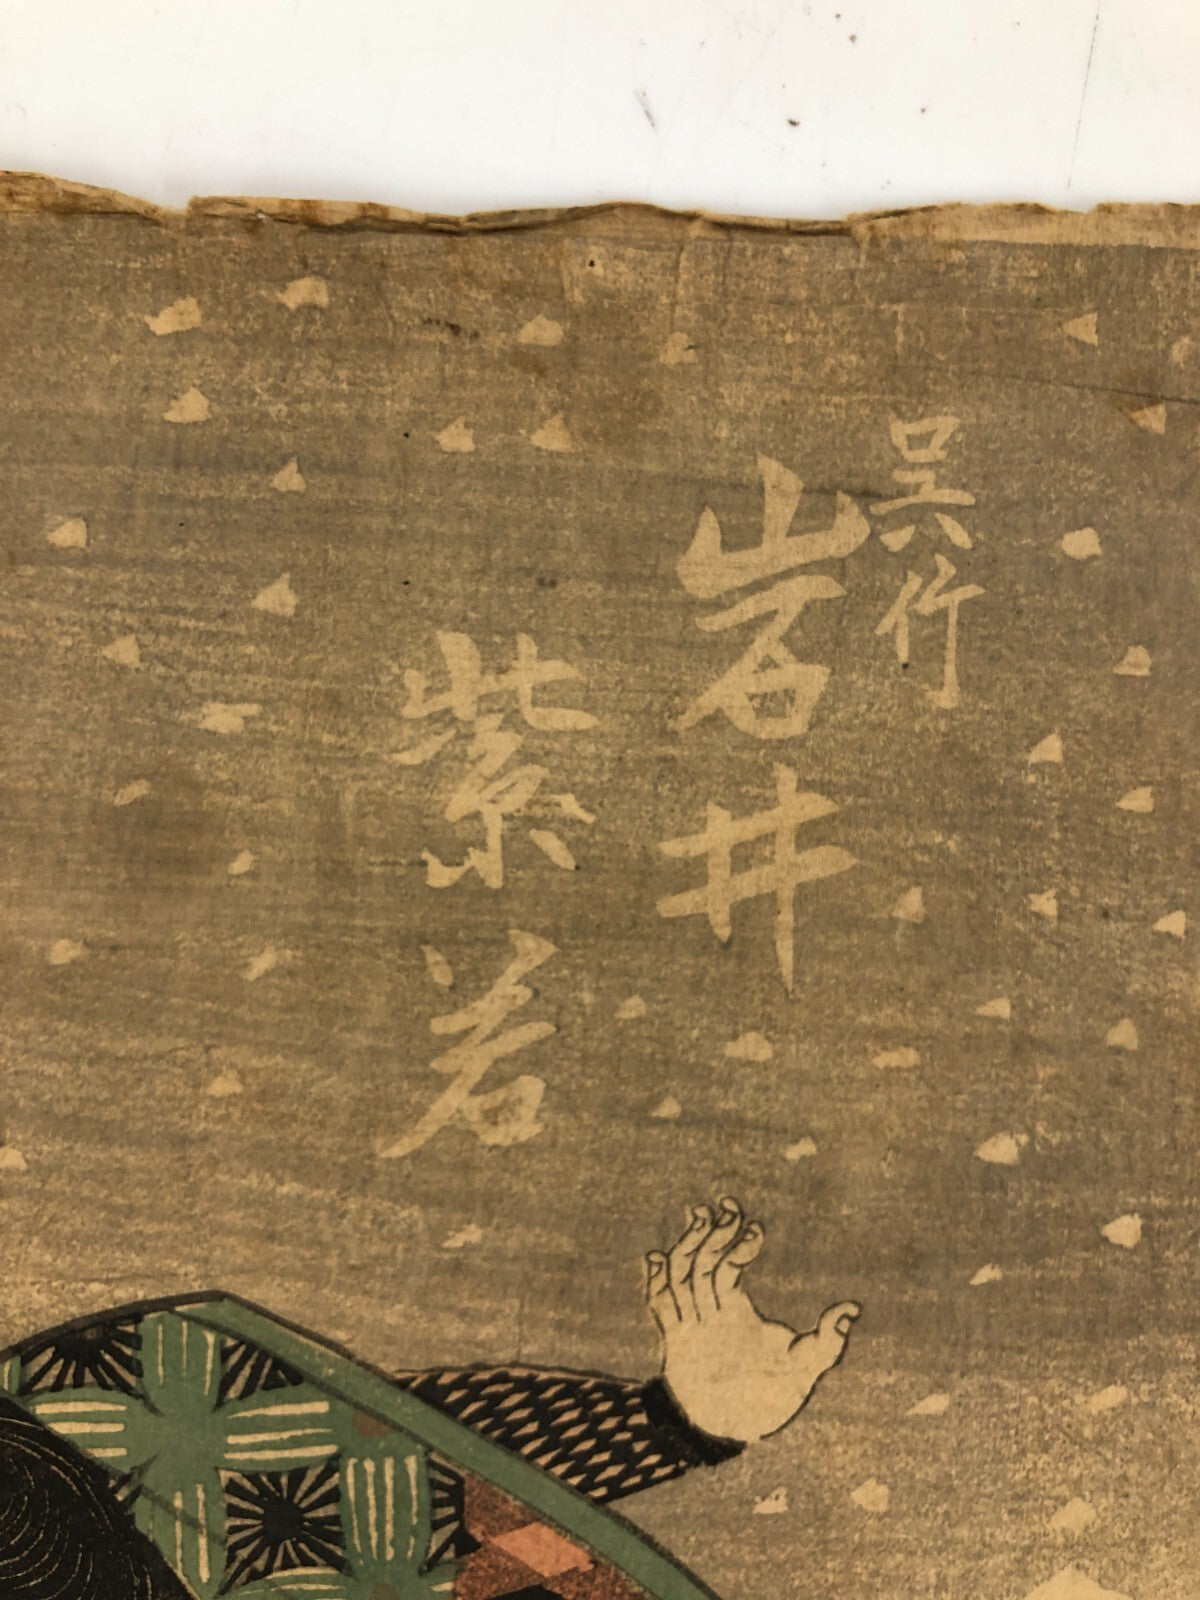 呉竹
岩井
紫若